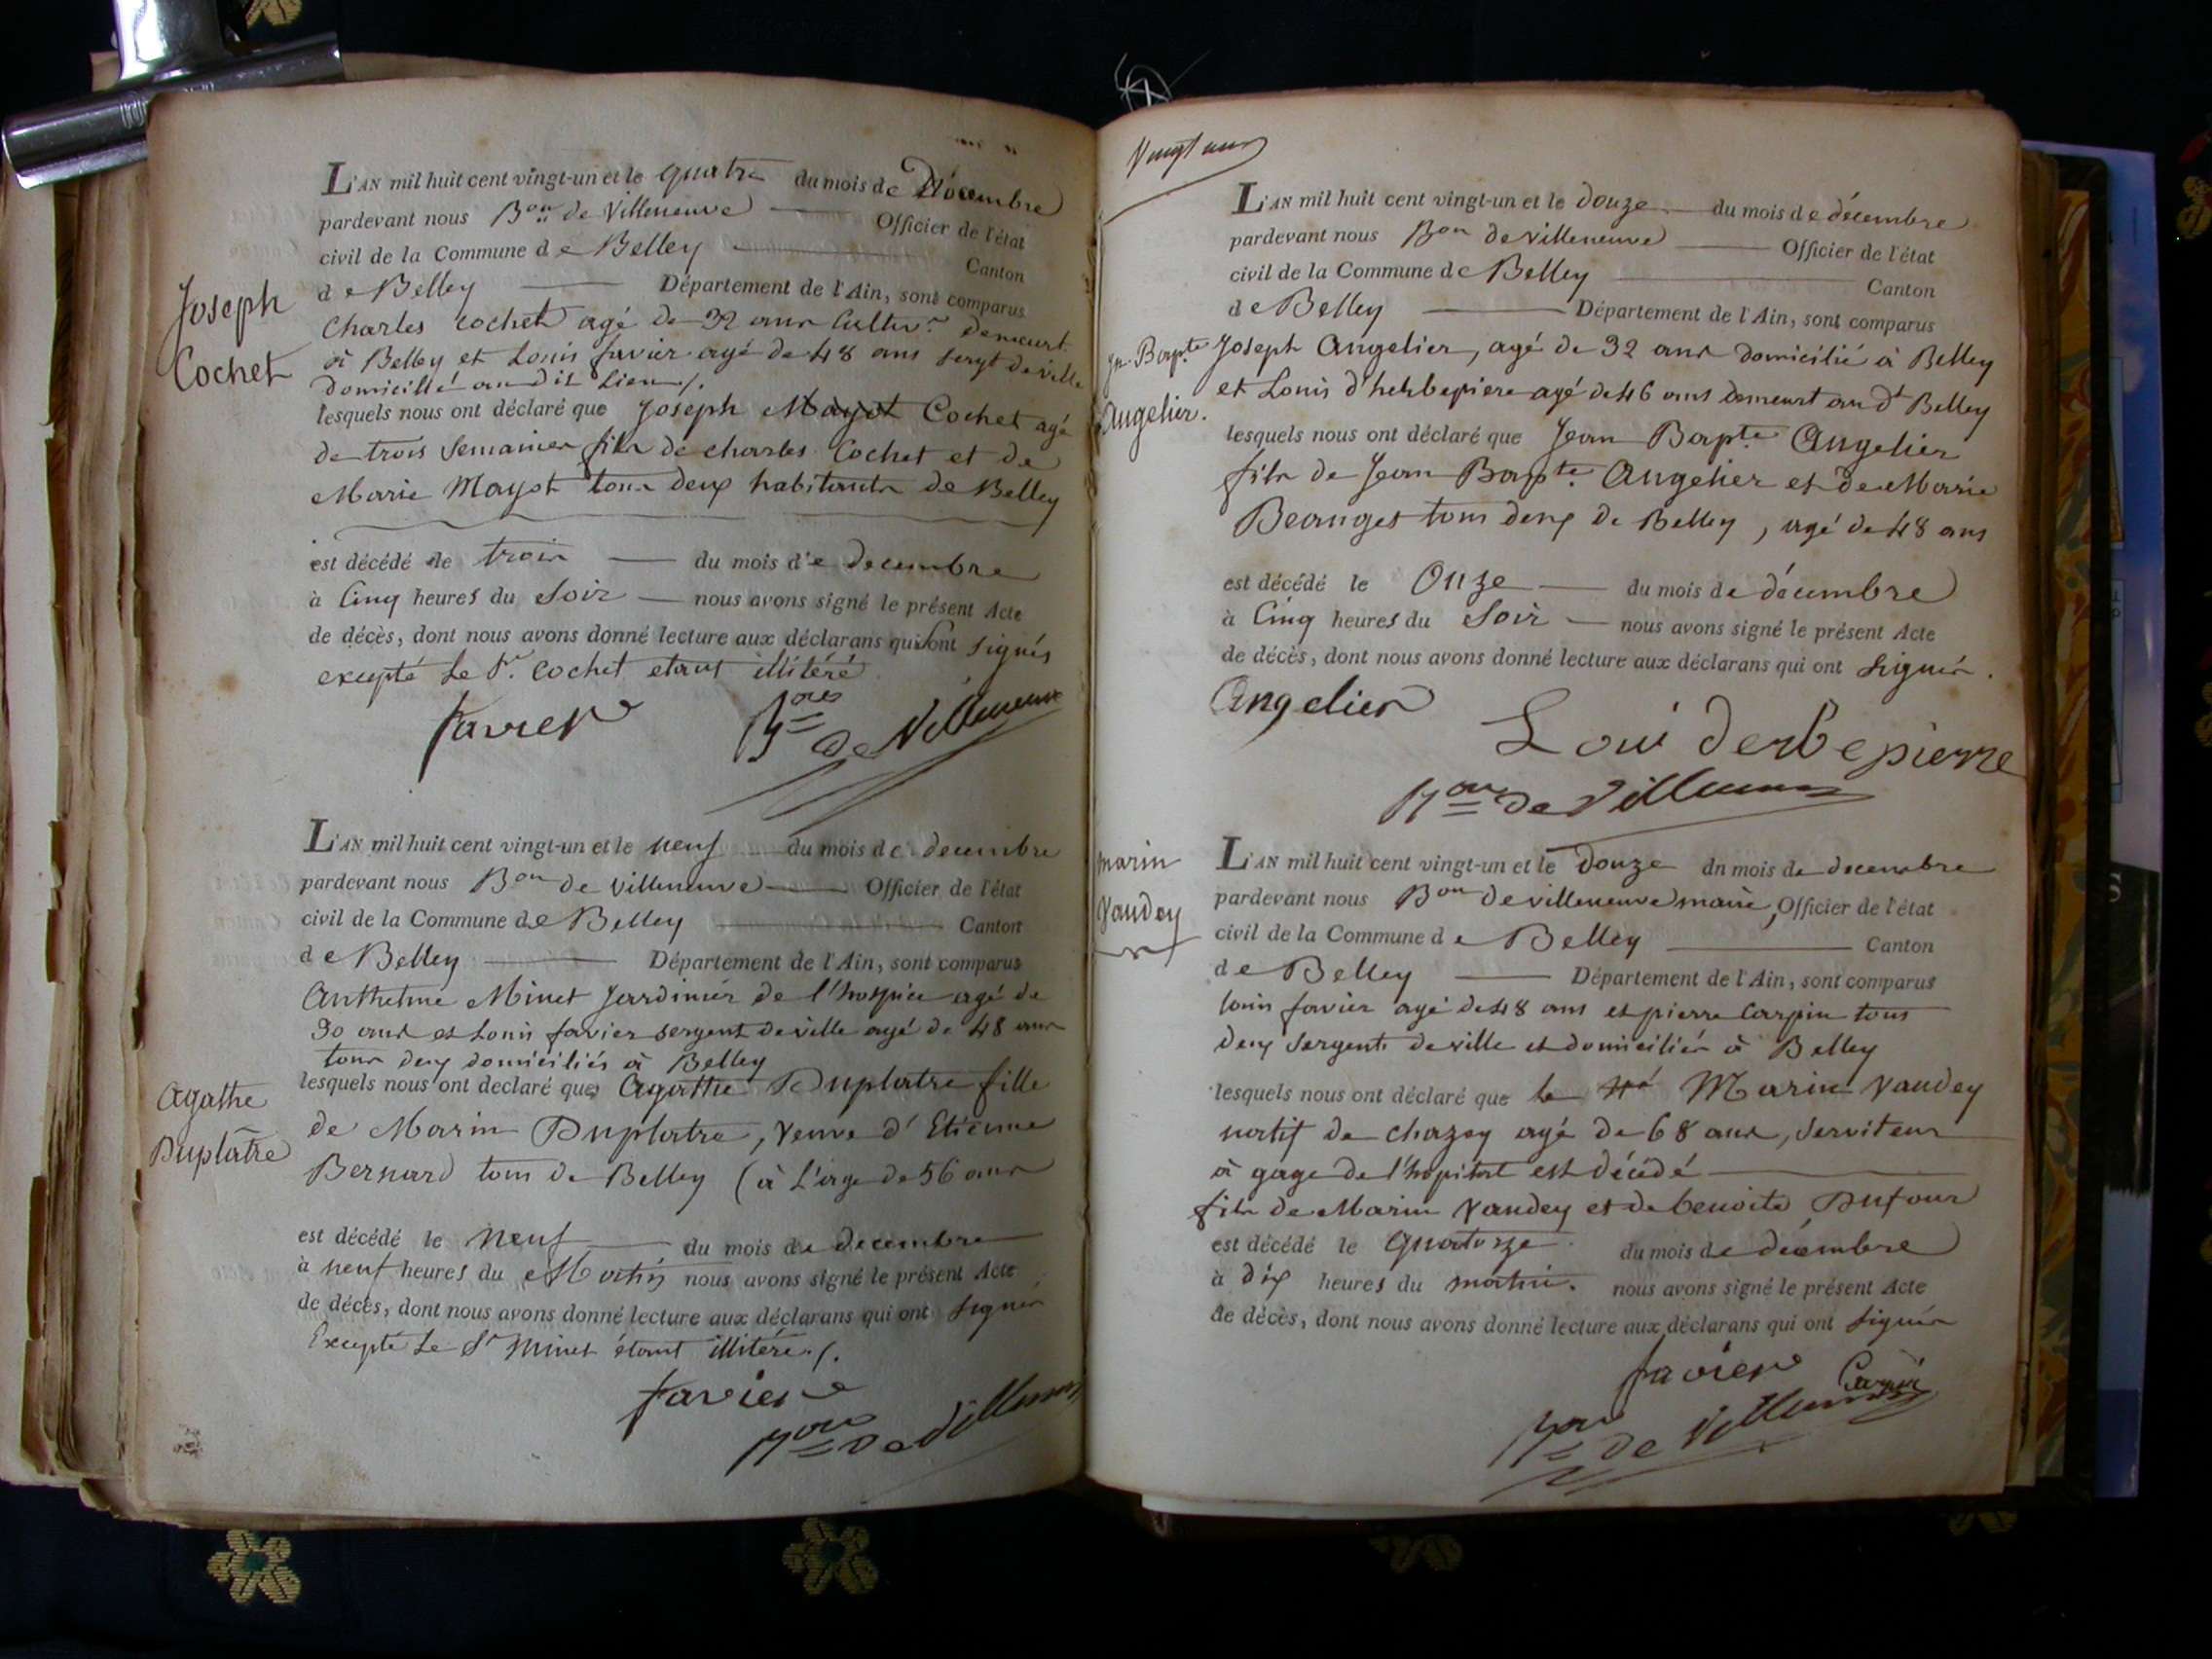 L'AN mil huit cent vingt-un et le quatre du mois de Décembre
pardevant nous Bon de Villeneuve Officier de l'état
civil de la Commune de Belley Canton
de Belley Département de l'Ain, sont comparus
Charles Cochet agé de 32 ans Cultivr. demeurt.
à Belley et Louis favier agé de 48 ans sergt de ville
domicillié au dit Lieu /.
Joseph
Cochet
lesquels nous ont déclaré que Joseph Mayot Cochet agé
de trois Semaines fils de charles Cochet et de
Marie Mayot tous deux habitants de Belley
est décédé le trois du mois de decembre
à Cinq heures du Soir nous avons signé le présent Acte
de décès, dont nous avons donné lecture aux déclarans qui ont signés
excepté Le Sr. Cochet etant illitéré
favier
Bon de Villeneuve
L'AN mil huit cent vingt-un et le neuf du mois de decembre
pardevant nous Bon de Villeneuve Officier de l'état
civil de la Commune de Belley Canton
de Belley Département de l'Ain, sont comparus
Anthelme Minet Jardinier de l'hospice agé de
30 ans et Louis favier sergent de ville agé de 48 ans
tous deux domiciliés à Belley
Agathe
Duplâtre
lesquels nous ont declaré que Agathe Duplatre fille
de Marin Duplatre, Veuve d'Etienne
Bernard tous de Belley (à L'age de 56 ans
est décédé le neuf du mois de decembre
à neuf heures du Matin nous avons signé le présent Acte
de décès, dont nous avons donné lecture aux déclarans qui ont signés
Excepté Le Sr Minet étant illitéré./.
favier
Bon de Villeneuve
Vingt un
L'AN mil huit cent vingt-un et le douze du mois de décembre
pardevant nous Bon de Villeneuve Officier de l'état
civil de la Commune de Belley Canton
de Belley Département de l'Ain, sont comparus
Jn. Bapte
Angelier.
Joseph Angelier, agé de 32 ans domicilié à Belley
et Louis d'herbepiere agé de 46 ans demeurt au dt Belley
lesquels nous ont déclaré que Jean Bapte Angelier
fils de Jean Bapte. Angelier et de Marie
Beanges tous deux de Belley, agé de 48 ans
est décédé le Onze du mois de décembre
à Cinq heures du Soir nous avons signé le présent Acte
de décès, dont nous avons donné lecture aux déclarans qui ont signés.
Angelier
Loui derbepierre
Bon de Villeneuve
marin
Vaudey
L'AN mil huit cent vingt-un et le douze du mois de decembre
pardevant nous Bon de Villeneuve maire, Officier de l'état
civil de la Commune de Belley Canton
de Belley Département de l'Ain, sont comparus
louis favier agé de 48 ans et pierre Carpin tous
deux sergents de ville et domiciliés à Belley
lesquels nous ont déclaré que le Marin Vaudey
natif de chazey agé de 68 ans, serviteur
à gage de l'hopital est décédé
fils de Marin Vaudey et de benoite Dufour
est décédé le Quatorze du mois de décembre
à dix heures du matin. nous avons signé le présent Acte
de décès, dont nous avons donné lecture aux déclarans qui ont signés
favier Carpin
Bon de Villeneuve